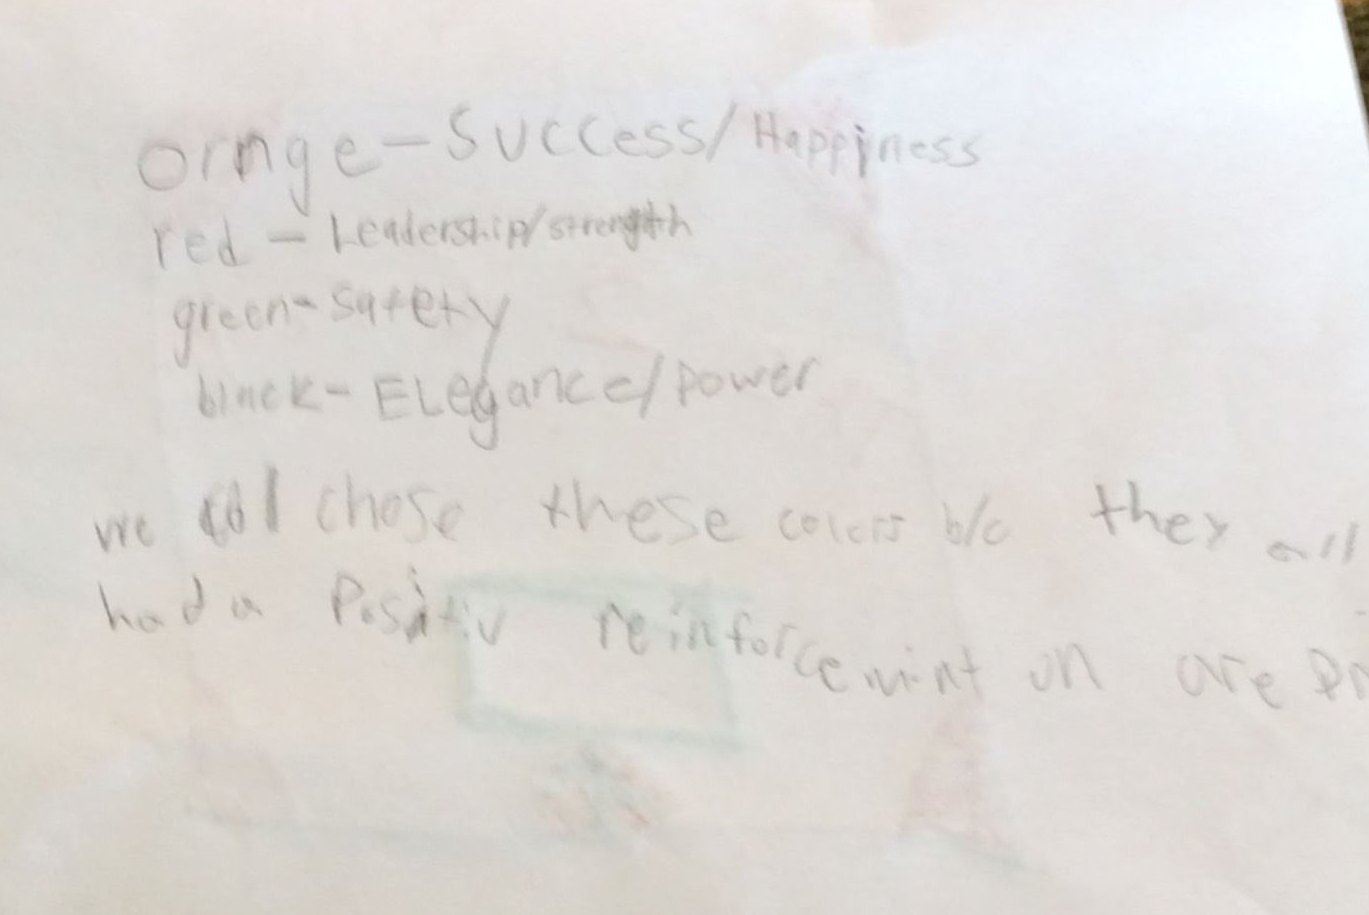 ornge - Success/Happiness
red - Leadership/strength
green - safety
black - ELegance/power
we all chose these colors b/c they all
had a Positiv reinforcemint on are